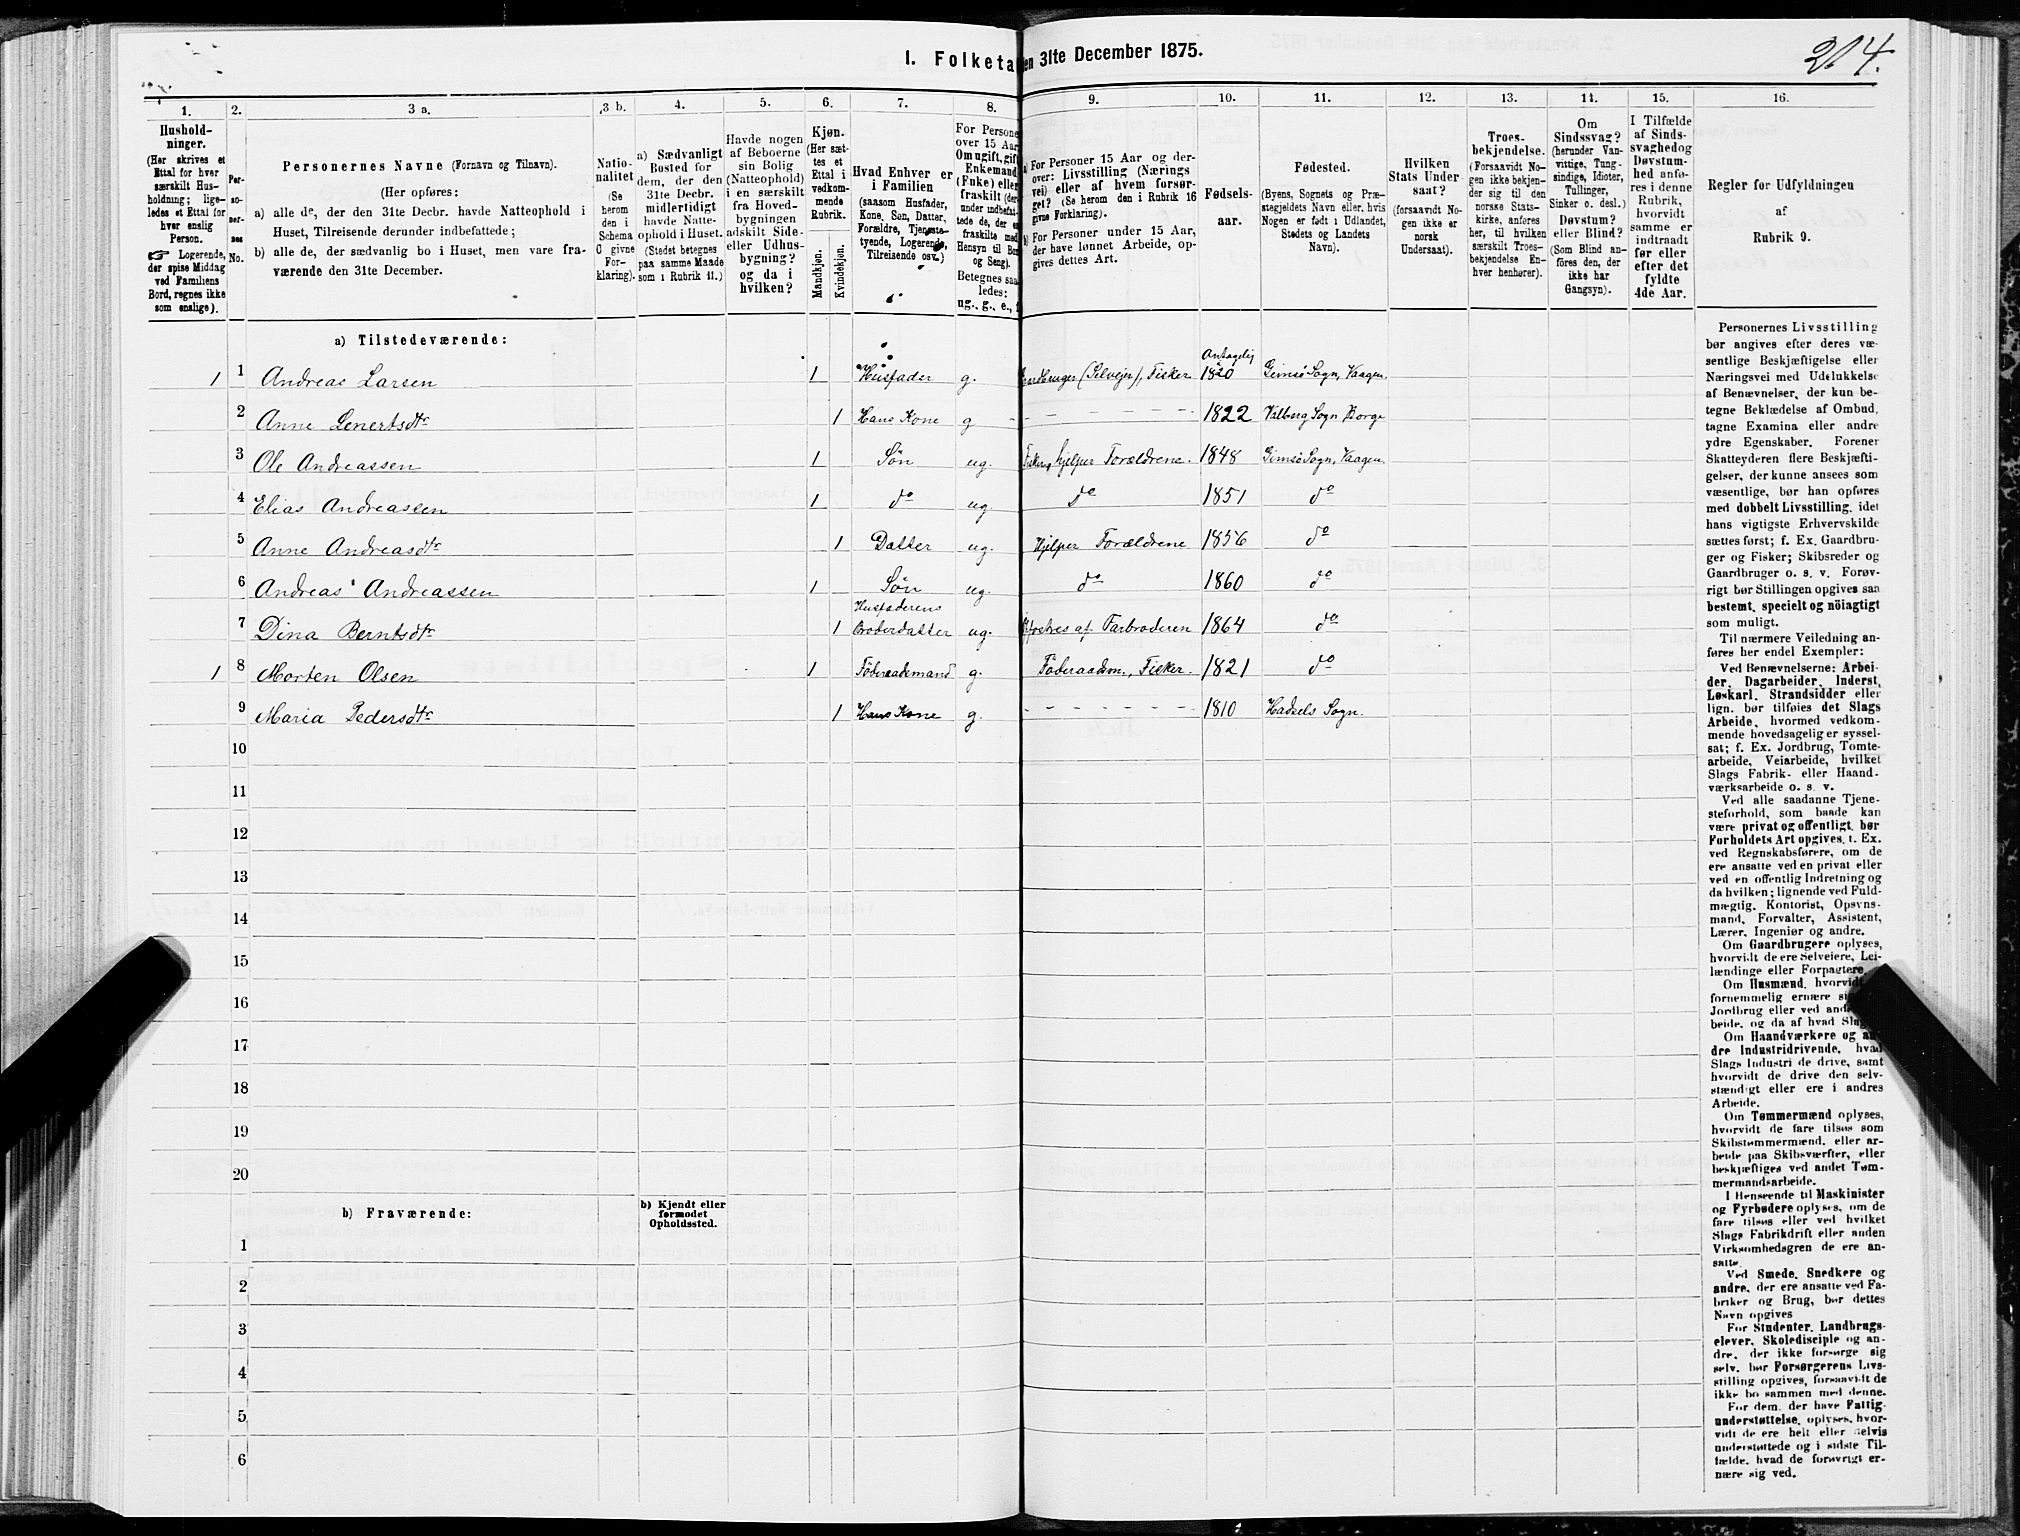 I. Folketa en 31te December 1875.
214.
1. 2. 3 a. 3 b. 4. 5. 6. 7. 8. 9. 10. 11. 12. 13. 14. 15. 16.
Hushold-
ninger.
(Her skrives et
Ettal for hver
særskilt Hus-
holdning; lige-
ledes et Ettal for
hver enslig
Person.
☞ Logerende,
der spise Middag
ved Familiens
Bord, regnes ikke
som enslige).
Per-
so-
ner-
nes
No.
Personernes Navne (Fornavn og Tilnavn).
(Her opføres:
a) alle de, der den 31te Decbr. havde Natteophold i
Huset, Tilreisende derunder indbefattede;
b) alle de, der sædvanlig bo i Huset, men vare fra-
værende den 31te December.
Natio-
nalitet
(Se
herom
den i
Schema
C givne
For-
klaring).
a) Sædvanligt
Bosted for
dem, der den
31te Decbr.
midlertidigt
havde Natte-
ophold i Huset.
(Stedet betegnes
paa samme Maade
som i Rubrik 11.)
Havde nogen
af Beboerne
sin Bolig
(Natteophold)
i en særskilt
fra Hoved-
bygningen
adskilt Side-
eller Udhus-
bygning?
og da i
hvilken?
Kjøn.
(Her sæt-
tes et
Ettal i
vedkom-
mende
Rubrik.
Mandkjøn.
Kvindekjøn.
Hvad Enhver er
i Familien
(saasom Husfader,
Kone, Søn, Datter,
Forældre, Tjeneste-
tyende, Logerende,
Tilreisende osv.)
For Persone
over 15 Aar
Om ugift, gift
Enkemand
(Enke) eller
fraskilt (der
under indbefat-
tede de, der er
fraskilte med
Hensyn til Bor
og Seng).
Betegnes saa
ledes:
ug., g., e., f
a) For Personer 15 Aar og der-
over: Livsstilling (Nærings
vei) eller af hvem forsør-
get? (Se herom den i Rubrik 16
givne Forklaring).
b) For Personer under 15 Aar,
der have lønnet Arbeide, op-
gives dettes Art.
Fødsels-
aar.
Fødested.
(Byens, Sognets og Præ-
stegjeldets Navn eller, hvis
Nogen er født i Udlandet,
Stedets og Landets
Navn).
Hvilken
Stats Under-
saat?
(forsaavidt No-
gen ikke er
norsk
Undersaat).
Troes-
bekjendelse.
(Forsaavidt No-
gen ikke bekjen-
der sig til den
norske Stats-
kirke, anføres
her, til hvilken
særskilt Troes-
bekjendelse En-
hver henhører).
Om
Sindssvag?
(herunder Van-
vittige, Tung-
sindige, Idioter,
Tullinger,
Sinker o. desl.)
Døvstum?
eller Blind?
(Som Blind an-
føres den, der
ikke har
Gangsyn).
I Tilfælde
af Sinds-
svaghedog
Døvstum-
hed anfø-
res i denne
Rubrik,
hvorvidt
samme er
indtraadt
før eller
efter det
fyldte
4de Aar.
Regler for Udfyldningen
af
Rubrik 9.
a) Tilstedeværende:
1 1 Andreas Larsen 1 Husfader g. (Selveier), Fisker Antagelig 1820 Gimsö Sogn, Vaagen
2 Anne Lenertsdtr 1 Hans Kone g - - - - - - - 1822 Valberg Sogn Borge
3 Ole Andreassen 1 Søn ug. hjelper Forældrene. 1848 Gimsö Sogn, Vaagen
4 Elias Andreassen 1 do ug. do 1851 do
5 Anne Andreasdtr 1 Datter ug. Hjelper Forældrene 1856 do
6 Andreas Andreassen 1 Søn ug. do 1860 do
7 Dina Berntsdtr 1 Husfaderens Broderdatter ug. af Farbroderen 1864 do
1 8 Morten Olsen 1 Föderaadsmand g. Föderaadm., Fisker 1821 do
9 Maria Pedersdtr 1 Hans Kone g. - - - - - - - 1810 Hadsels Sogn.
10
11
12
13
14
15
16
17
18
19
20
b) Fraværende:
b) Kjendt eller
formodet
Opholdssted.
1
2
3
4
5
6
Personernes Livsstilling
bør angives efter deres væ-
sentlige Beskjæftigelse eller
Næringsvei med Udelukkelse
af Benævnelser, der kun be-
tegne Beklædelse af Ombud,
tagne Examina eller andre
ydre Egenskaber. Forener
Skatteyderen flere Beskjæfti-
gelser, der kunne ansees som
væsentlige, bør han opføres
med dobbelt Livsstilling, idet
hans vigtigste Erhvervskilde
sættes først; f. Ex. Gaardbru-
ger og Fisker; Skibsreder og
Gaardbruger o. s. v. Forøv-
rigt bør Stillingen opgives saa
bestemt, specielt og nöiagtigt
som muligt.
Til nærmere Veiledning an-
føres her endel Exempler:
Ved Benævnelserne: Arbei-
der, Dagarbeider, Inderst,
Løskarl, Strandsidder eller
lign. bør tilføies det Slags
Arbeide, hvormed vedkom-
mende hovedsagelig er syssel-
sat; f. Ex. Jordbrug, Tomte-
arbeide, Veiarbeide, hvilket
Slags Fabrik- eller Haand-
værksarbeide o. s. v.
Ved alle saadanne Tjene-
steforhold, som baade kan
være privat og offentligt, bør
Forholdets Art opgives, t. Ex.
ved Regnskabsførere, om de
ere ansatte ved en privat eller
ved en offentlig Indretning og
da hvilken; lignende ved Fuld-
mægtig, Kontorist, Opsyns-
mand, Forvalter, Assistent,
Lærer, Ingeniør og andre.
Om Gaardbrugere oplyses,
hvorvidt de ere Selveiere, Lei-
lændinge eller Forpagtere.
Om Husmænd, hvorvidt
fornemmelig ernære si
Jordbrug eller ved and
beide, og da af hvad Slag
Om Haandværkere og an
dre Industridrivende, hvad
Slags Industri de drive, samt
hvorvidt de drive den selv-
stændigt eller ere i andres
Arbeide.
Om Tømmermænd oplyses,
hvorvidt de fare tilsøs som
Skibstømmermænd, eller ar-
beide paa Skibsværfter, eller
beskjæftiges ved andet Tøm-
mermandsarbeide.
I Henseende til Maskinister
og Fyrbødere oplyses, om de
fare tilsøs eller ved hvilket
Slags Fabrikdrift eller anden
Virksomhedsgren de ere an-
satte.
Ved Smede, Snedkere og
andre, der ere ansatte ved Fa-
briker og Brug, bør dettes
Navn opgives
For Studenter, Landbrugs-
elever, Skoledisciple og an-
dre, der ikke forsørge sig
selv, bør Forsørgerens Livs-
stilling opgives, forsaavidt de
ikke bo sammen med denne.
For dem, der have Fattig-
understøttelse, oplyses, hvor-
vidt de ere helt eller delvis
understøttede og i sidste Til-
fælde, hvad de forøvrigt er-
nære sig ved.